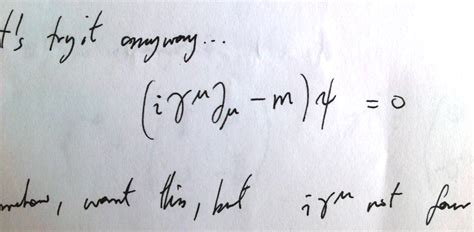 t's try it anyway...
(iγ^μ∂_μ - m)ψ = 0
want this, but iγ^μ not